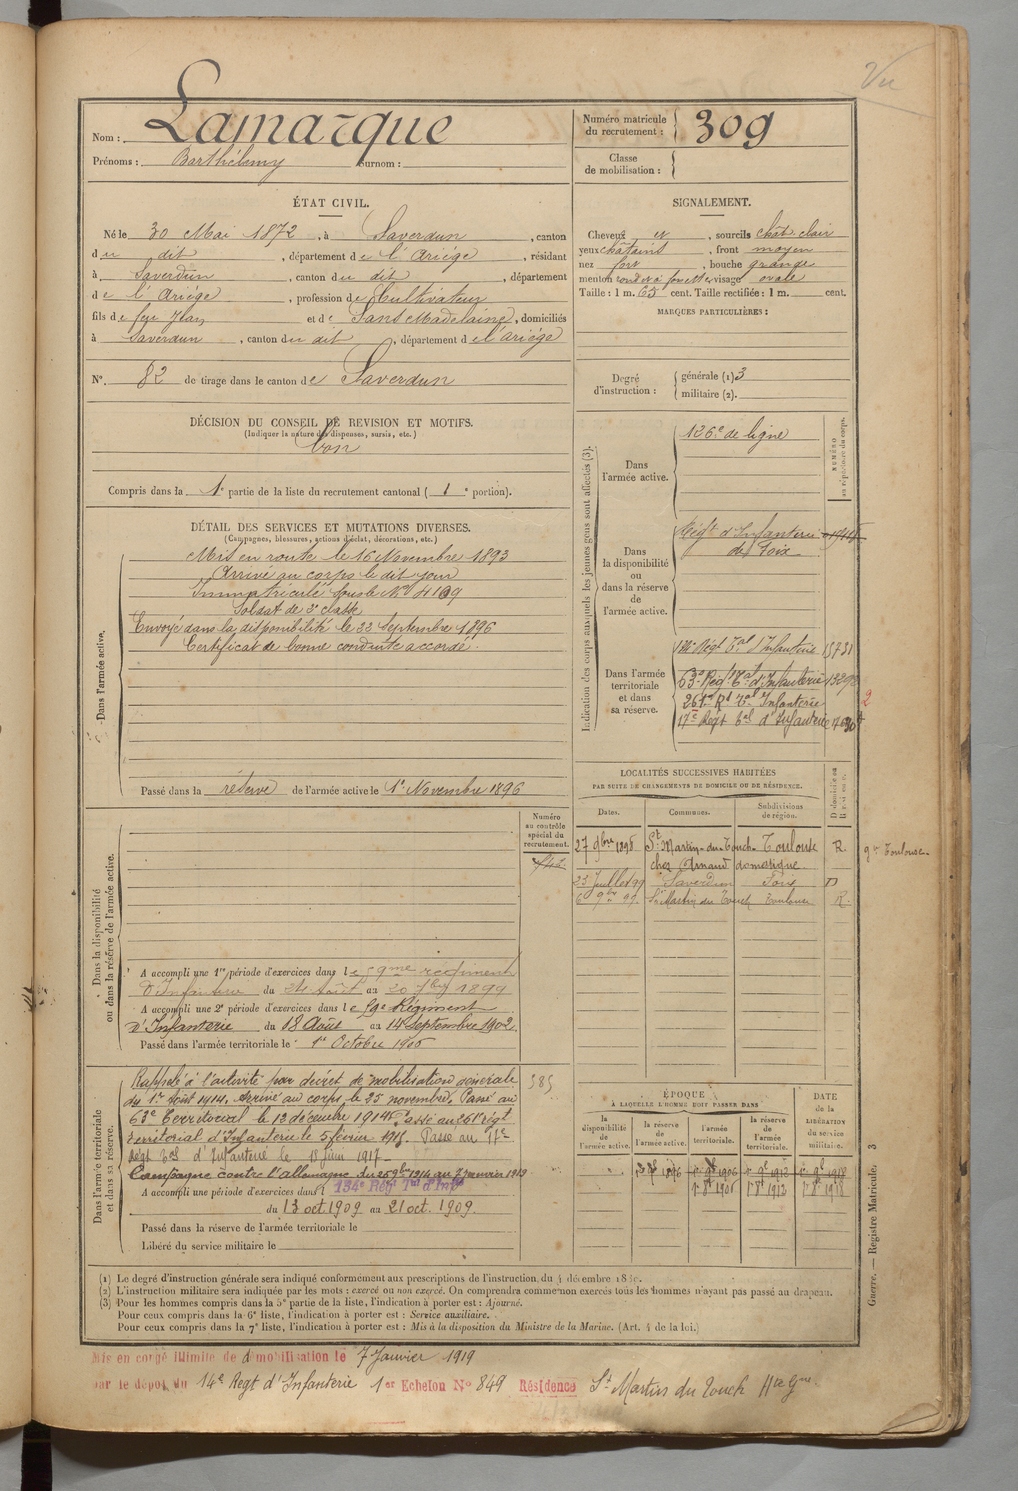 Vu
Nom : Lamarque
Prénoms : Barthélemy Surnom :
Numéro matricule du recrutement : 309
Classe de mobilisation :
ÉTAT CIVIL.
Né le 30 Mai 1872, à Saverdun, canton
du dit, département de l'Ariége, résidant
à Saverdun, canton du dit, département
de l'Ariége, profession de Cultivateur
fils de feu Jean et de Sans Madelaine, domiciliés
à Saverdun, canton du dit, département de l'Ariége
N° 82 de tirage dans le canton de Saverdun
SIGNALEMENT.
Cheveux et, sourcils chât. clair
yeux châtains, front moyen
nez fort, bouche grande
menton rond à fossette visage ovale
Taille : 1 m. 65 cent. Taille rectifiée : 1 m. cent.
MARQUES PARTICULIÈRES :
Degré d'instruction : générale (1) 3
militaire (2).
DÉCISION DU CONSEIL DE REVISION ET MOTIFS.
(Indiquer la nature des dispenses, sursis, etc.)
bon
Compris dans la 1e partie de la liste du recrutement cantonal (1e portion).
DÉTAIL DES SERVICES ET MUTATIONS DIVERSES.
(Campagnes, blessures, actions d'éclat, décorations, etc.)
Dans l'armée active.
Mis en route le 16 Novembre 1893
Arrivé au corps le dit jour
Immatriculé sous le N°
Soldat de 2e classe
Envoyé dans la disponibilité le 22 Septembre 1896
Certificat de bonne conduite accordé.
Passé dans la réserve de l'armée active le 1er Novembre 1896
Indication des corps auxquels les jeunes gens sont affectés (3).
NUMÉRO au répertoire du corps.
Dans l'armée active.
126e de ligne
Dans la disponibilité ou dans la réserve de l'armée active.
Régt d'Infanterie
de Foix
Dans l'armée territoriale et dans sa réserve.
Régt Tal d'Infanterie 15731
63e Rég. Tal d'Infanterie
261e Rt Tal Infanterie
17e Régt Tal d'Infanterie
2
LOCALITÉS SUCCESSIVES HABITÉES
PAR SUITE DE CHANGEMENTS DE DOMICILE OU DE RÉSIDENCE.
Dates. Communes. Subdivisions de région. D domicile ou R résidence.
27 9bre 1898 St Martin-du-Touch Toulouse R. gn Toulouse
chez Arnaud domestique
23 Juillet 99 Saverdun Foix D
6 9bre 99. St Martin du Touch Toulouse R.
Dans la disponibilité ou dans la réserve de l'armée active.
Numéro au contrôle spécial du recrutement.
A accompli une 1re période d'exercices dans le 59me régiment
d'Infanterie du 24 Août au 20 7bre 1899
A accompli une 2e période d'exercices dans le 59e Régiment
d'Infanterie du 18 Août au 14 Septembre 1902.
Passé dans l'armée territoriale le 1er Octobre 1906
Dans l'armée territoriale et dans sa réserve.
Rappelé à l'activité par décret de mobilisation générale
du 1er Août 1914. Arrivé au corps le 25 novembre. Passé au
63e Territorial le 12 décembre 1914. Passé au 261e régt
territorial d'Infanterie le 5 février 1915. Passé au 17e
Régt Tal d'Infanterie le 18 juin 1917
Campagne contre l'allemagne du 25 9bre 1914 au 7 janvier 1919
A accompli une période d'exercices dans l 134e Régt Tal d'Infie
du 13 oct 1909 au 21 oct. 1909.
Passé dans la réserve de l'armée territoriale le
Libéré du service militaire le
585
ÉPOQUE
A LAQUELLE L'HOMME DOIT PASSER DANS
la disponibilité de l'armée active. la réserve de l'armée active. l'armée territoriale. la réserve de l'armée territoriale. DATE de la LIBÉRATION du service militaire.
1896 1er 9e 1906 1er 9e 1912 1er 9e 1918
1er 8e 1906 1er 8e 1912 1er 8e 1918
(1) Le degré d'instruction générale sera indiqué conformément aux prescriptions de l'instruction du 4 décembre
(2) L'instruction militaire sera indiquée par les mots : exercé ou non exercé. On comprendra comme non exercés tous les hommes n'ayant pas passé au drapeau.
(3) Pour les hommes compris dans la 5e partie de la liste, l'indication à porter est : Ajourné.
Pour ceux compris dans la 6e liste, l'indication à porter est : Service auxiliaire.
Pour ceux compris dans la 7e liste, l'indication à porter est : Mis à la disposition du Ministre de la Marine. (Art. 4 de la loi.)
Guerre. — Registre Matricule. 3
Mis en congé illimité de démobilisation le 7 Janvier 1919
par le dépôt du 14e Régt d'Infanterie 1er Echelon N° 849 Résidence St Martin du Touch Hte Gne